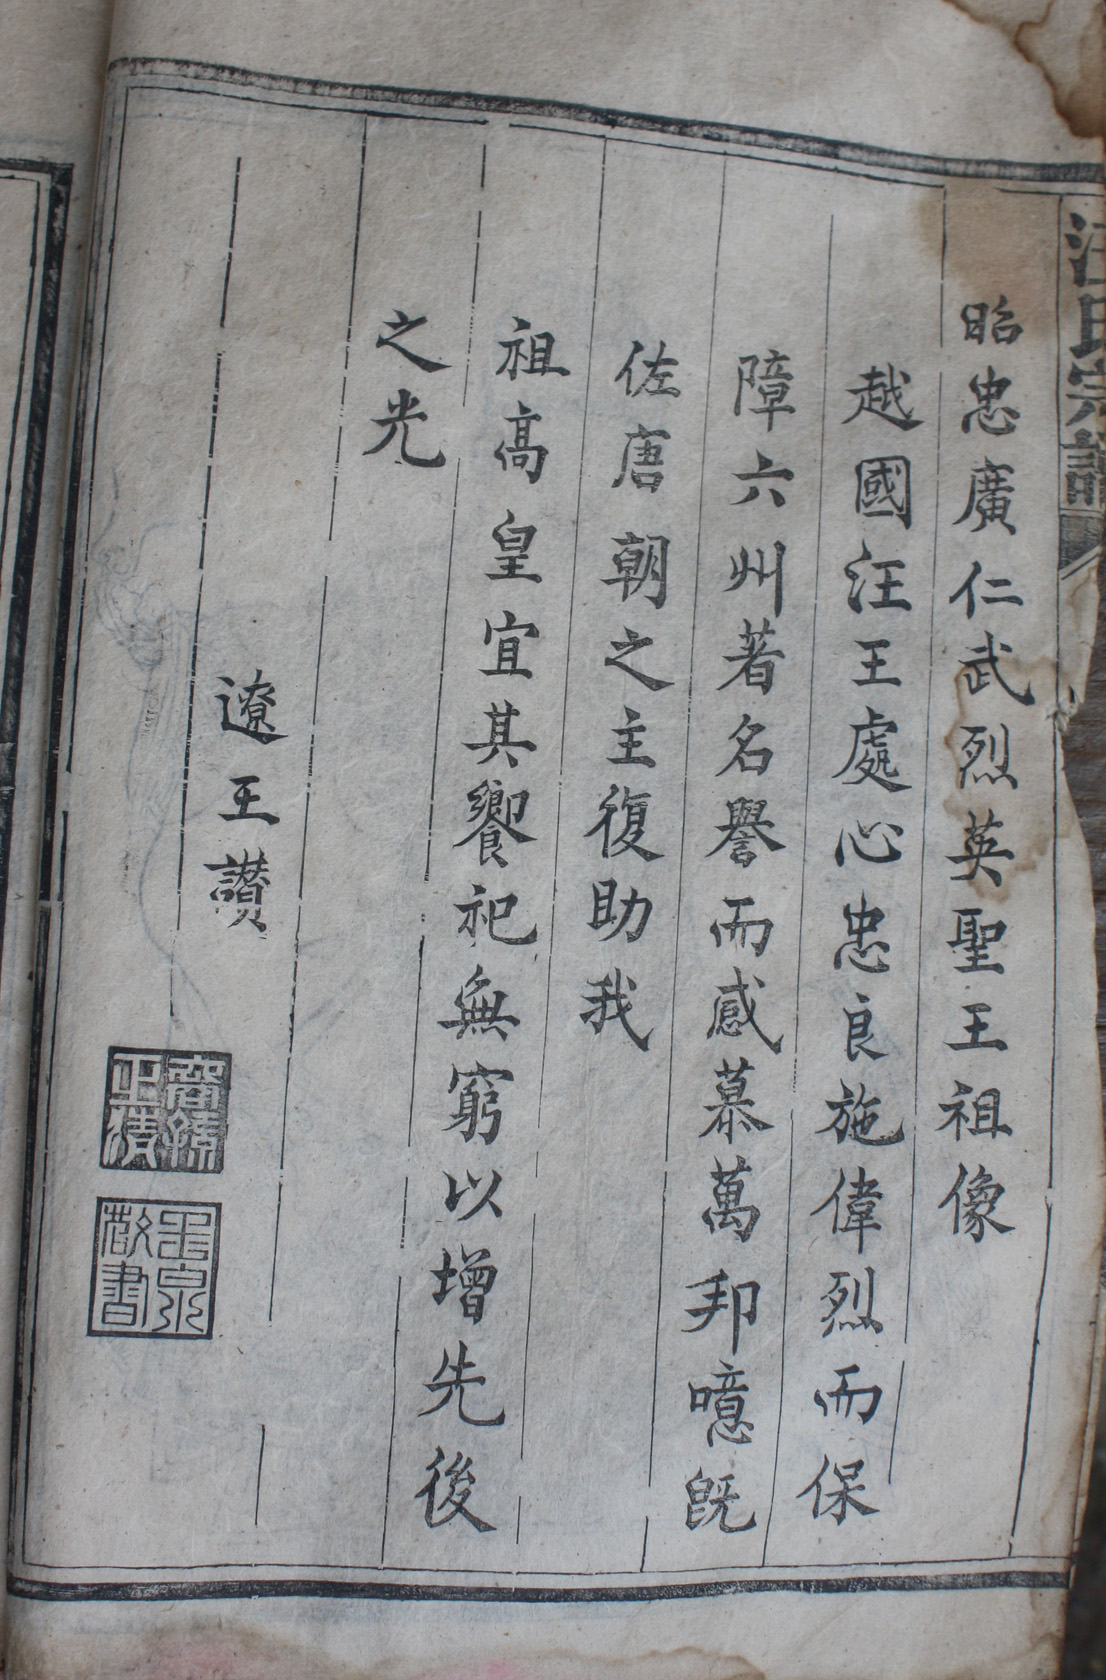 汪氏宗譜
昭忠廣仁武烈英聖王祖像
越國汪王處心忠良施偉烈而保
障六州著名譽而感慕萬邦噫既
佐唐朝之主復助我
祖高皇宜其饗祀無窮以增先後
之光
遼王讚